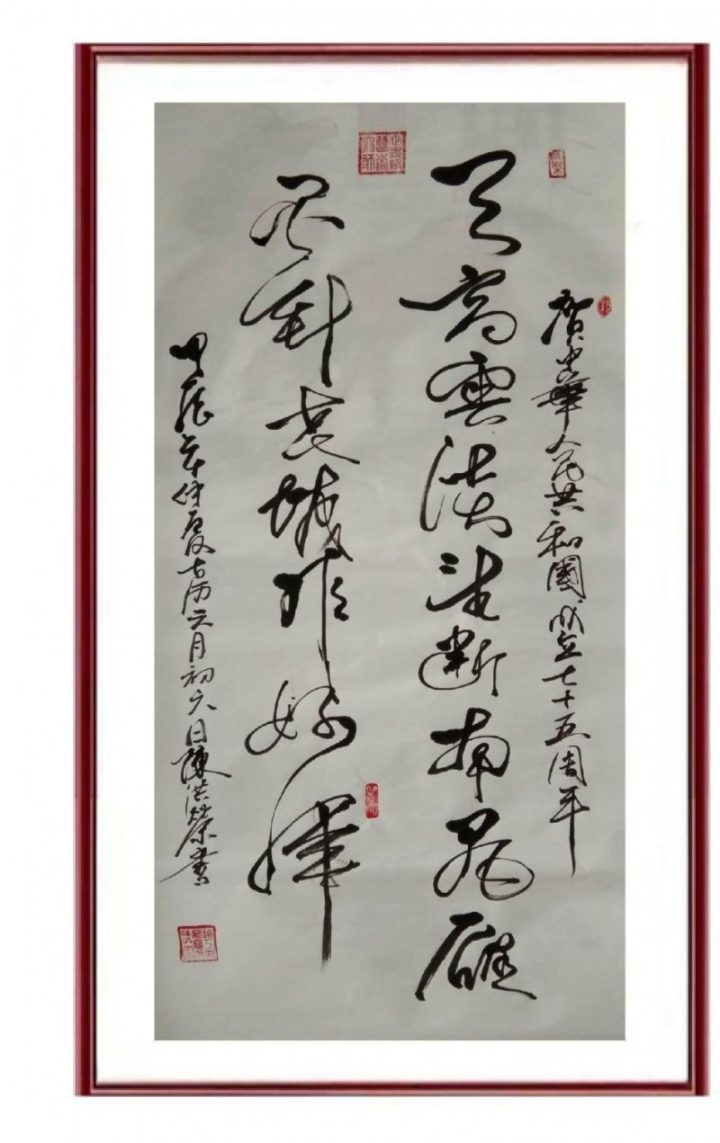 賀中華人民共和國成立七十五周年
天高雲淡望断南飛雁
不到長城非好漢
甲辰年仲夏古历六月初六日陳洪榮書